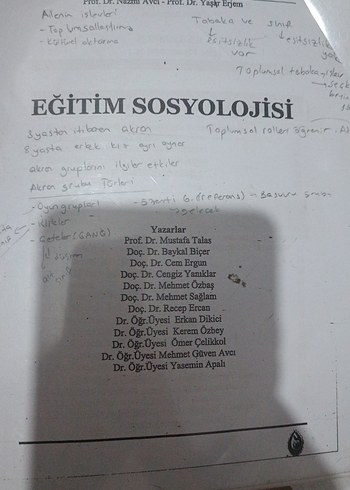 Prof. Dr. Nazmi Avcı - Prof. Dr. Yaşar Erjem
Ailenin işlevleri
- Toplumsallaştırma
- Kültürel aktarma
Tabaka ve sınıf
eşitsizlik
var
eşitsizlik
Toplumsal
EĞİTİM SOSYOLOJİSİ
3 yaştan itibaren akran
8 yaşta erkek kız ayrı
Toplumsal rolleri öğrenir.
akran gruplarını etkiler
Akran grubu
- Oyun grupları
- Klikler
- Çeteler (GANG)
Yazarlar
Prof. Dr. Mustafa Talas
Doç. Dr. Baykal Biçer
Doç. Dr. Cem Ergun
Doç. Dr. Cengiz Yanıklar
Doç. Dr. Mehmet Özbaş
Doç. Dr. Mehmet Sağlam
Doç. Dr. Recep Ercan
Dr. Öğr.Üyesi Erkan Dikici
Dr. Öğr.Üyesi Kerem Özbey
Dr. Öğr.Üyesi Ömer Çelikkol
Dr. Öğr.Üyesi Mehmet Güven Avcı
Dr. Öğr.Üyesi Yasemin Apalı